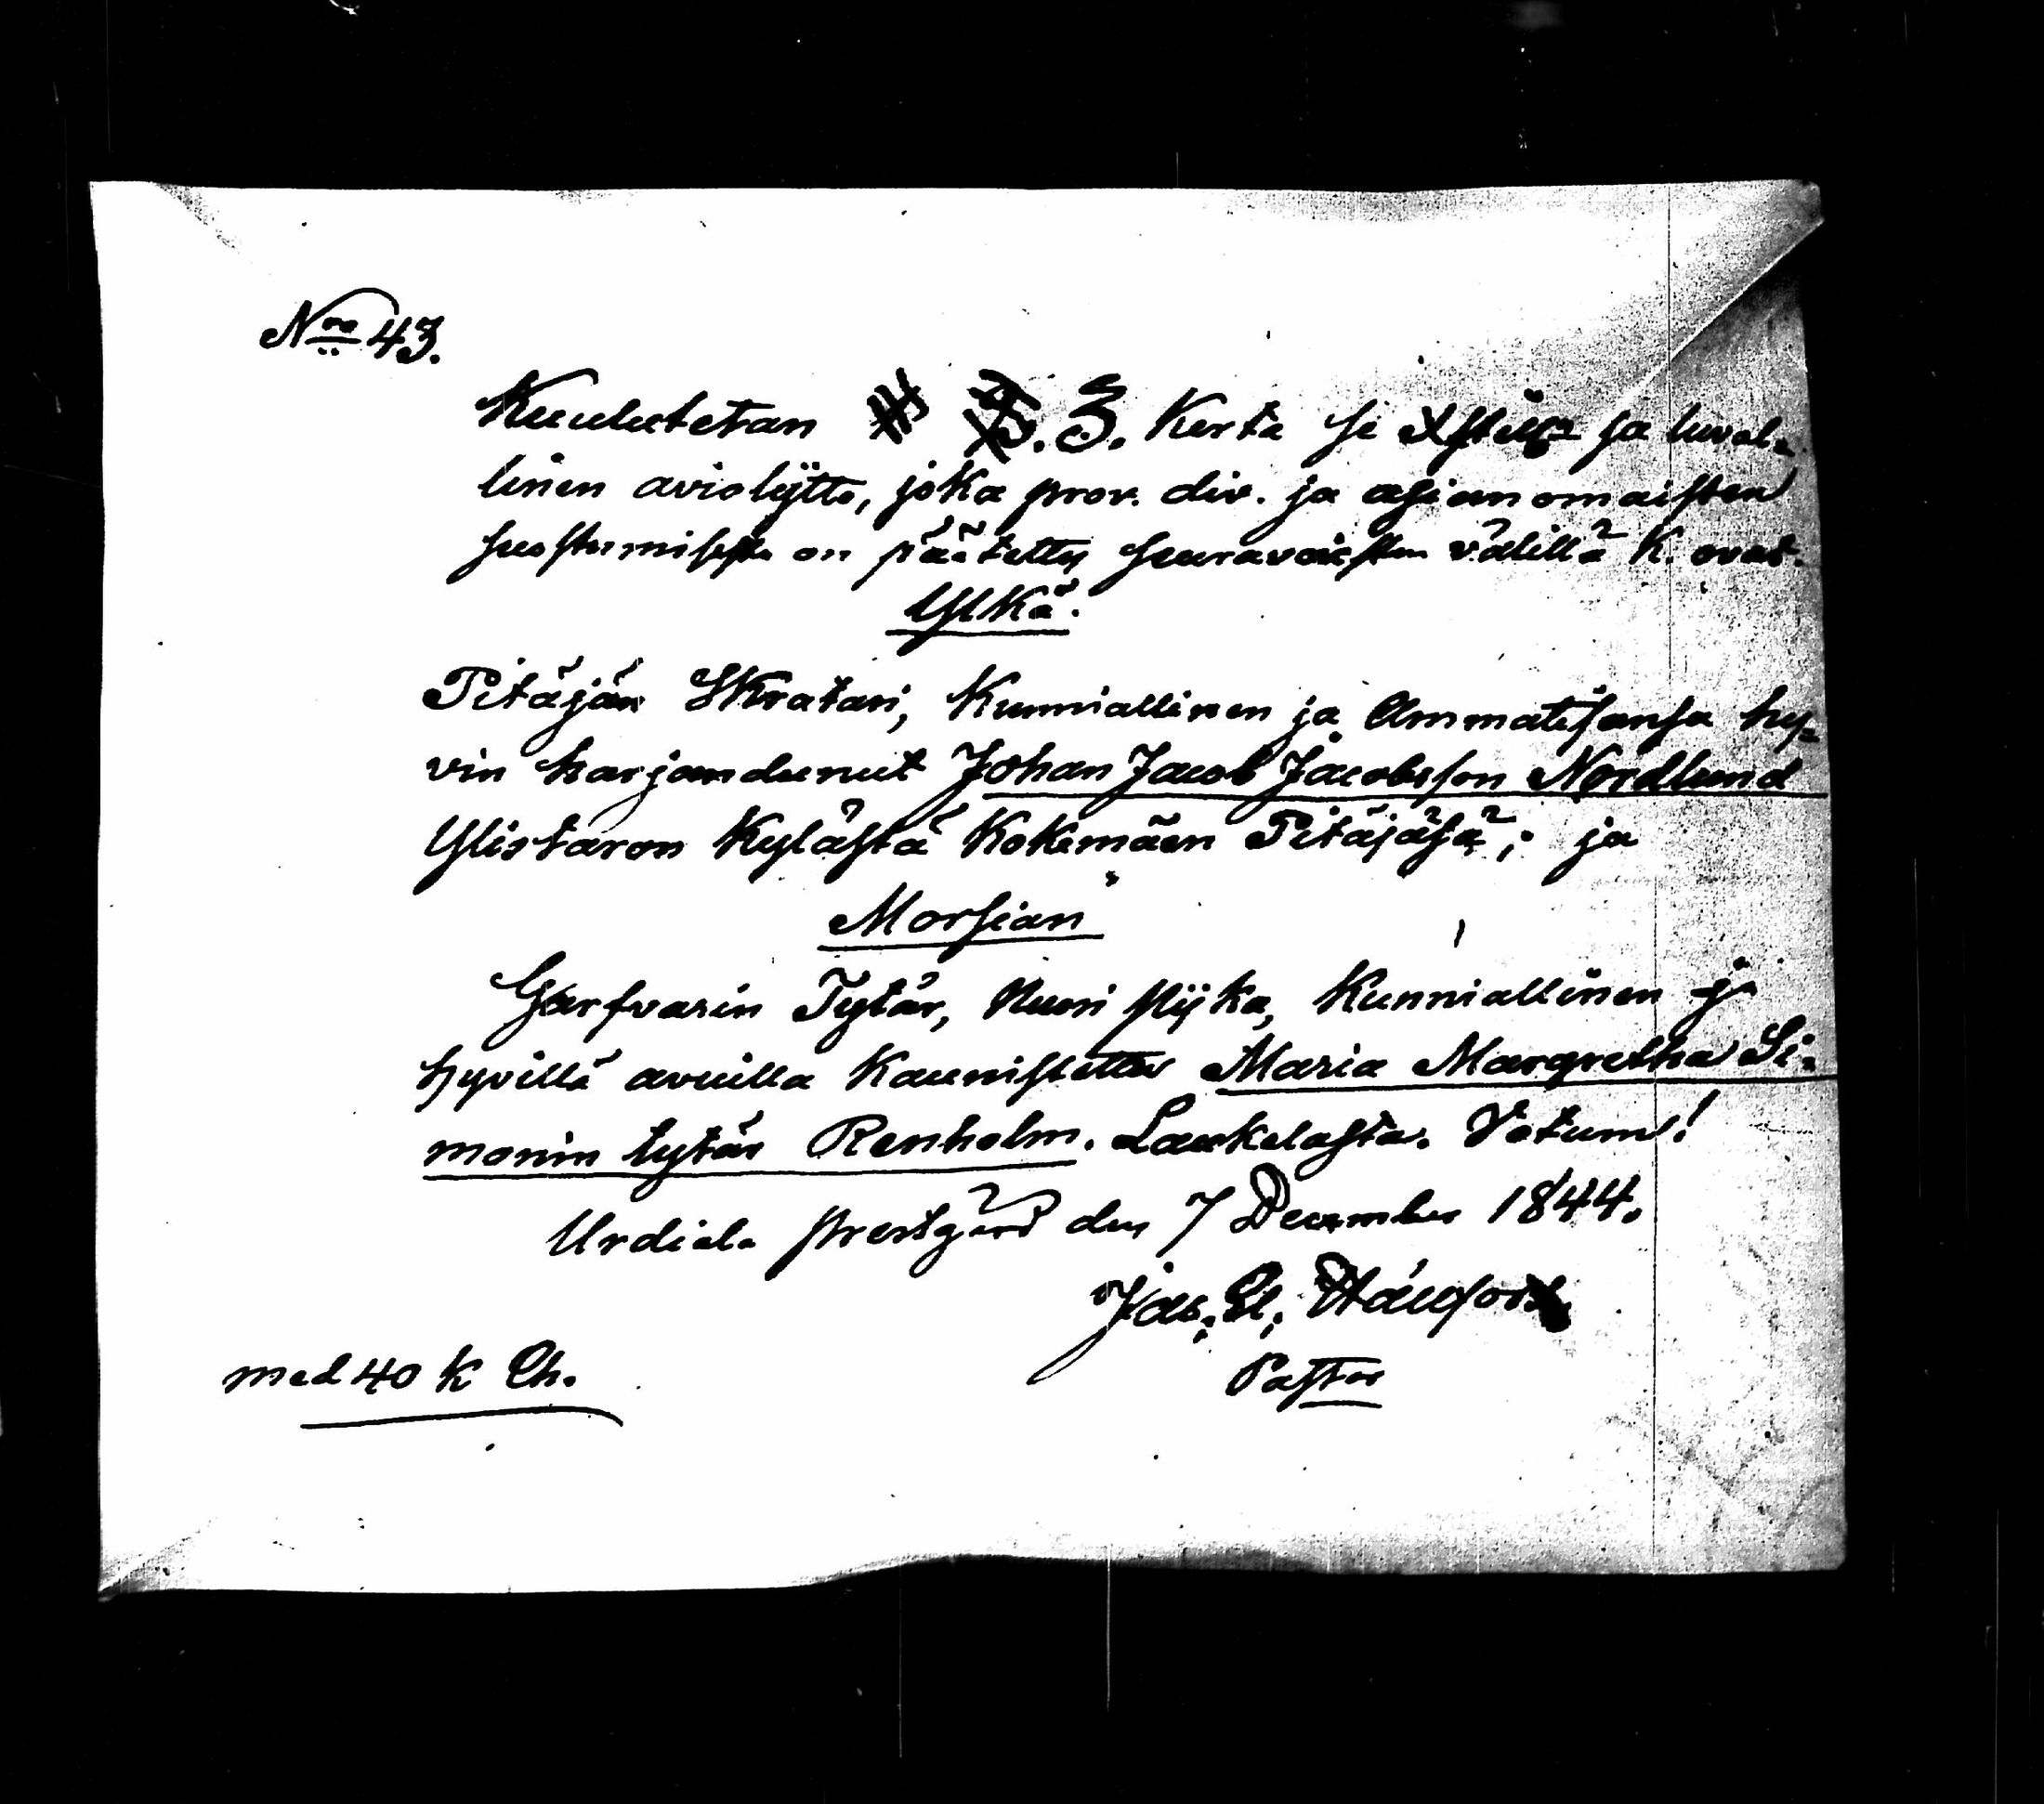 Nro 43.
Kuulutetan 3. Kerta se Xstilis ja luval-
linen avioliytto, joka prov. div. ja asianomaisten
suostumisesta on päätetty seuravaisten välillä K. ovat.
Ylkä.
Pitäjän Skratari, Kunniallinen ja Ammatisansa hy-
vin harjandunut Johan Jacob Jacobsson Nordlund
Ylistaron Kylästä Kokemäen Pitäjäsä; ja
Morsian
Garfvarin Tytär, Nuori piika, Kunniallinen ja
hyvillä avuilla Kaunistettu Maria Margretha Si-
monin tytär Renholm. Laukelasta. Votum!
Urdiala prestgård den 7 December 1844.
Jac. 
Pastor
med 40 k Ch.